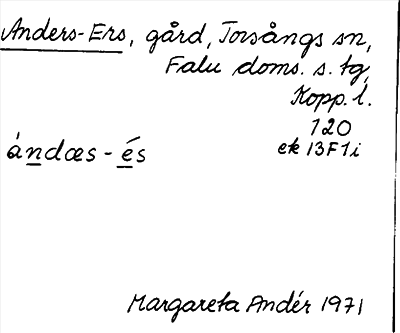 Anders-Ers, gård, Torsångs sn,
Falu doms. s. tg,
Kopp. l.
120
ek 13F1i
àndæs - és
Margareta Andér 1971